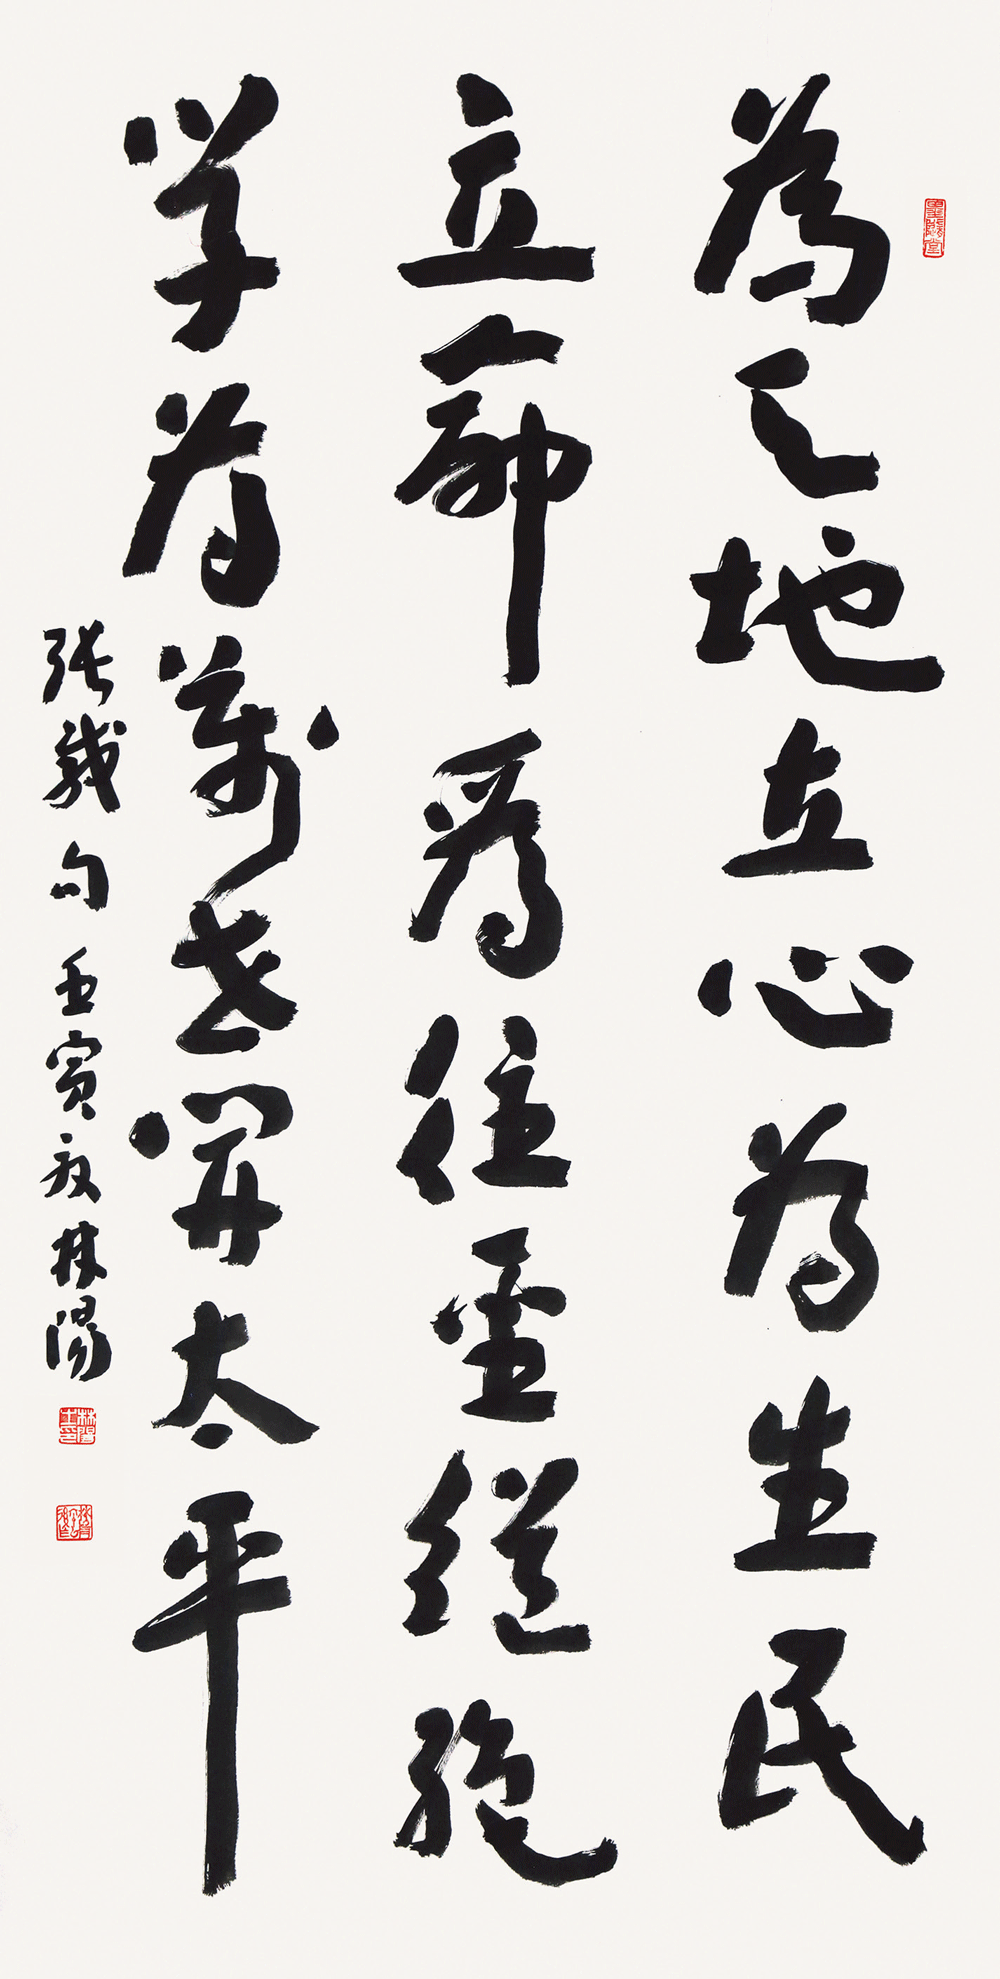 為天地立心為生民
立命為往聖繼絕
学為萬世開太平
張載句 壬寅 林陽